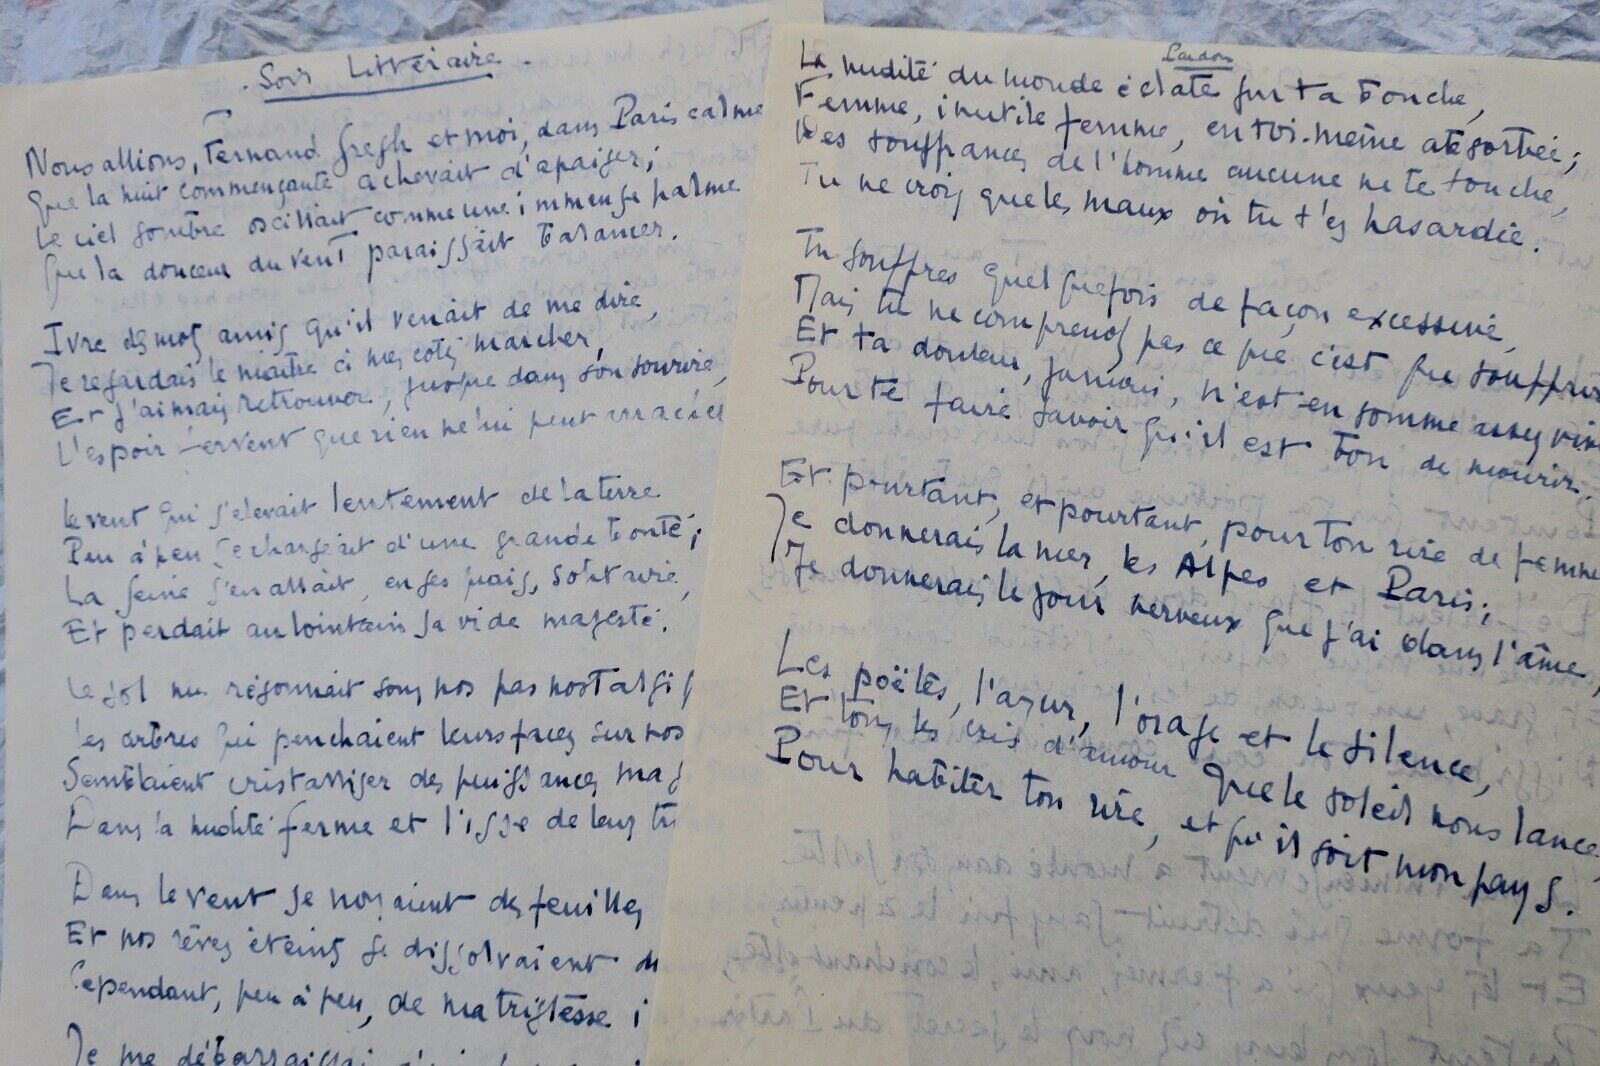 Soir Littéraire
Nous allions, Fernand Gregh et moi, dans Paris calme
Que la nuit commençante achevait d'apaiser;
Le ciel sombre oscillait comme une immense palme
Que la douceur du vent paraissait balancer.
Ivre des mots amis qu'il venait de me dire,
Je regardais le maître à mes côtés marcher,
Et j'aimais retrouver, jusque dans son sourire,
L'espoir fervent que rien ne lui peut arracher
Le vent qui s'élevait lentement de la terre
Peu à peu se chargeait d'une grande bonté;
La Seine s'en allait, en ses quais, solitaire,
Et perdait au lointain sa vide majesté.
Le sol nu résonnait sous nos pas nostalgi
Les arbres qui penchaient leurs faces sur nos
Semblaient cristalliser des puissances mag
Dans la nudité ferme et lisse de leurs
Dans le vent se noyaient des feuilles
Et nos rêves éteints se dissolvaient
Cependant, peu à peu, de ma tristesse
Je me débarrassai
Pardon
La nudité du monde éclate sur ta bouche,
Femme, inutile femme, en toi-même absorbée;
Des souffrances de l'homme aucune ne te touche,
Tu ne crois que les maux où tu t'es hasardée.
Tu souffres quelquefois de façon excessive,
Mais tu ne comprends pas ce que c'est que souffrir
Et ta douleur, jamais, n'est en somme assez vive
Pour te faire savoir qu'il est bon de mourir.
Et pourtant, et pourtant, pour ton rire de femme
Je donnerais la mer, les Alpes et Paris;
Je donnerais le jour nerveux que j'ai dans l'âme,
Les poëtes, l'azur, l'orage et le silence,
Et tous les cris d'amour que le soleil nous lance,
Pour habiter ton rire, et qu'il soit mon pays.